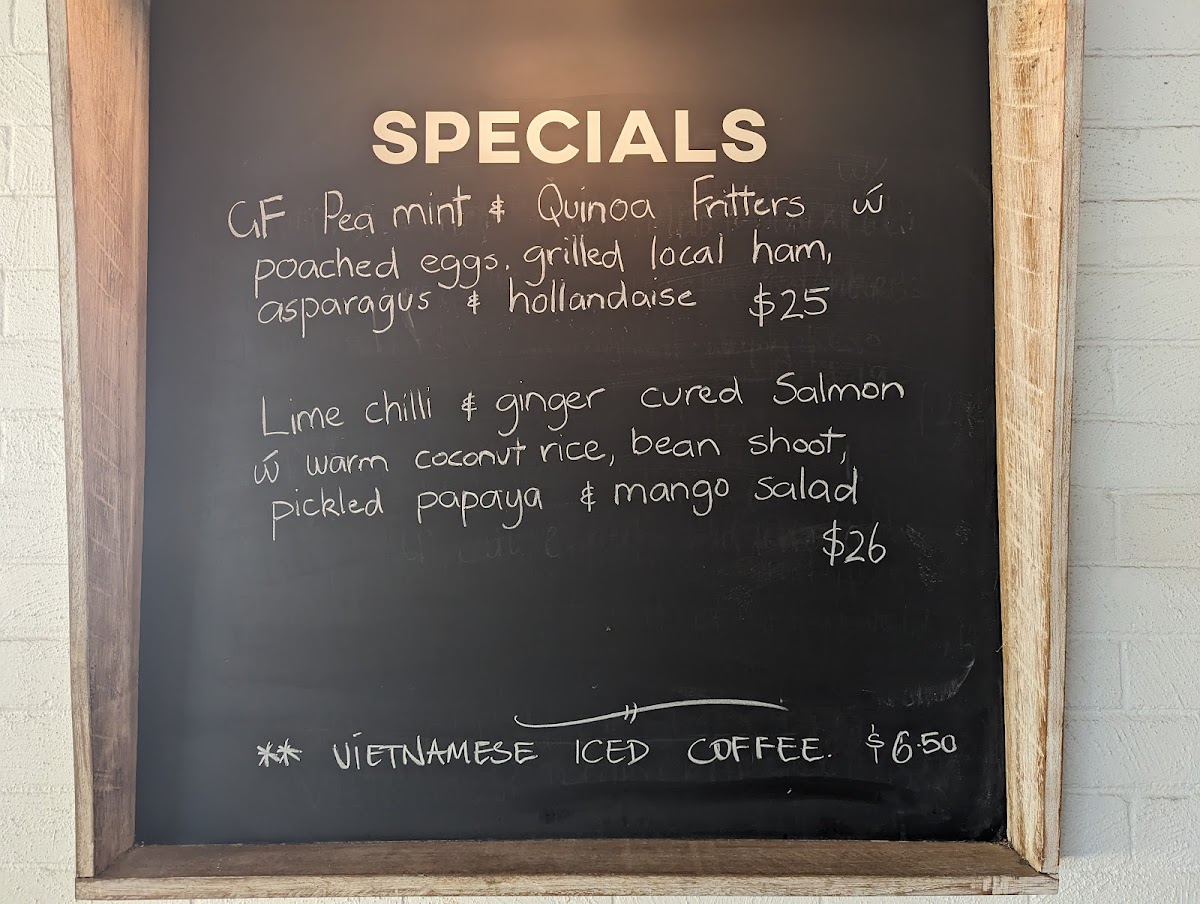 SPECIALS
GF Pea mint & Quinoa Fritters w
poached eggs, grilled local ham,
asparagus & hollandaise $25
Lime chilli & ginger cured Salmon
w warm coconut rice, bean shoot,
pickled papaya & mango salad
$26
** VIETNAMESE ICED COFFEE. $6.50